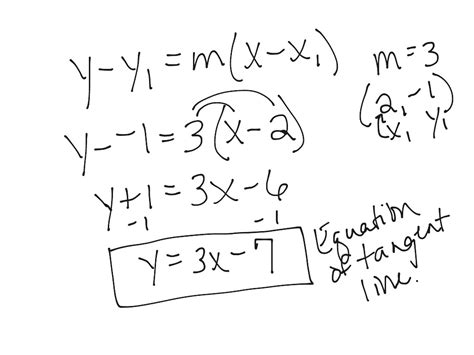 y - y₁ = m(x - x₁)
m = 3
(2, -1)
x₁ y₁
y - -1 = 3(x - 2)
y + 1 = 3x - 6
-1 -1
y = 3x - 7
Equation
of tangent
line.